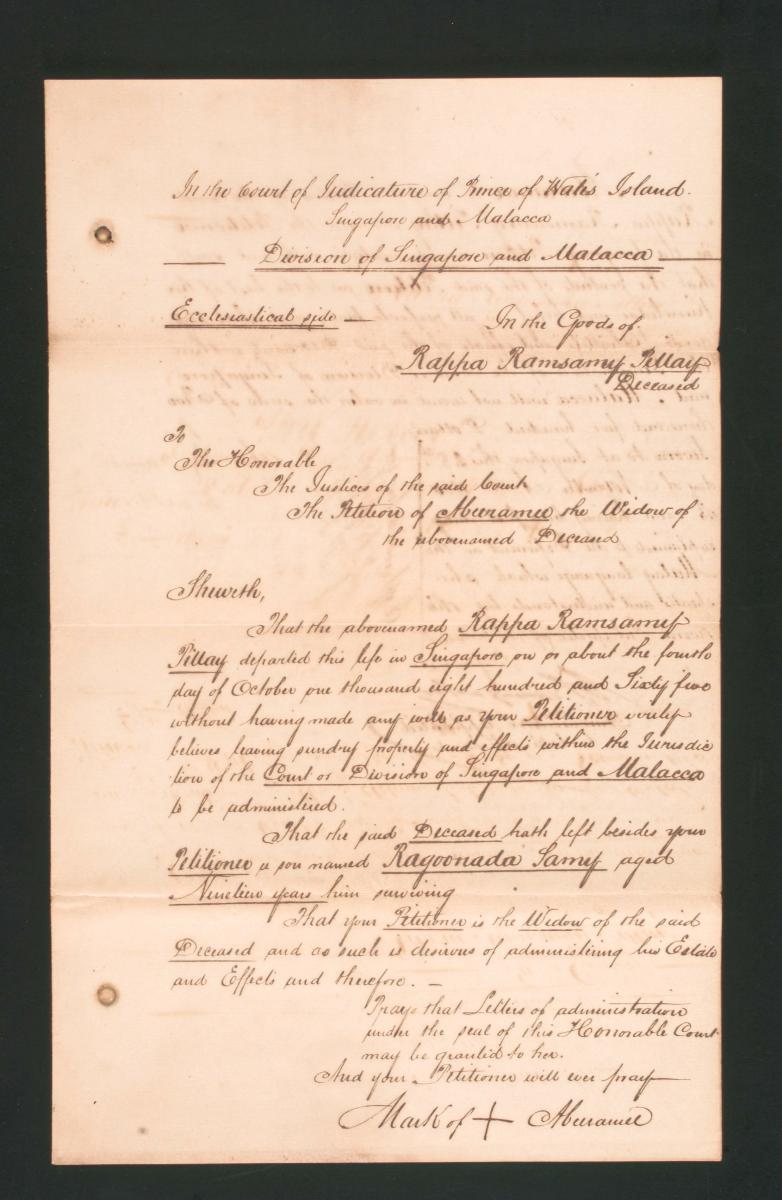 In the Court of Judicature of Prince of Wales Island.
Singapore and Malacca
Division of Singapore and Malacca
Ecclesiastical side —
In the Goods of
Rappa Ramsamy Pillay
Deceased
To
The Honorable
The Justices of the said Court
The Petition of Meeramee the Widow of
the abovenamed Deceased
Sheweth,
That the abovenamed Rappa Ramsamy
Pillay departed this life in Singapore on or about the fourth
day of October one thousand eight hundred and Sixty five
without having made any will as your Petitioner verily
believes leaving sundry property and effects within the Jurisdic
tion of the Court or Division of Singapore and Malacca
to be administered.
That the said Deceased hath left besides your
Petitioner a son named Ragoonada Samy aged
Nineteen years him surviving
That your Petitioner is the Widow of the said
Deceased and as such is desirous of administering his Estate
and Effects and therefore. —
Prays that Letters of administration
under the seal of this Honorable Court
may be granted to her.
And your Petitioner will ever pray
Mark of + Meeramee